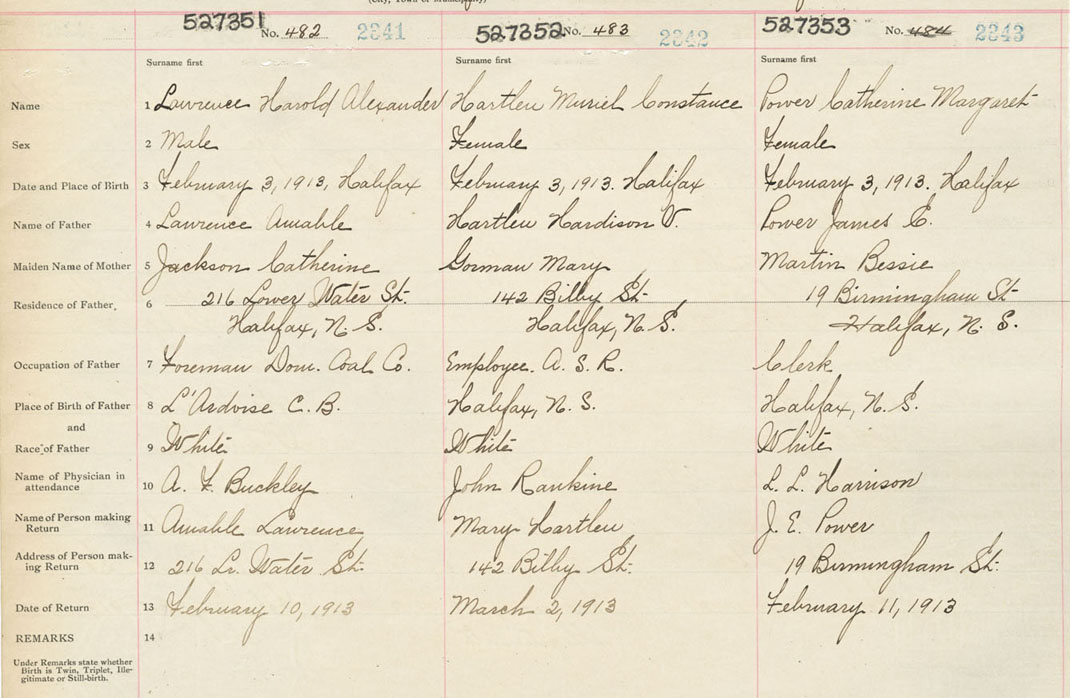 527351 No. 482 2341 527352 No. 483 2342 527353 No. 484 2343
Surname first Surname first Surname first
Name 1 Lawrence Harold Alexander Hartlen Muriel Constance Power Catherine Margaret
Sex 2 Male Female Female
Date and Place of Birth 3 February 3, 1913, Halifax February 3, 1913. Halifax February 3, 1913. Halifax
Name of Father 4 Lawrence Amable Hartlen Hardison V. Power James E.
Maiden Name of Mother 5 Jackson Catherine Gorman Mary Martin Bessie
Residence of Father, 6 216 Lower Water St. 142 Bilby St. 19 Birmingham St
Halifax, N. S. Halifax, N. S. Halifax, N. S.
Occupation of Father 7 Foreman Dom. Coal Co. Employee. A. S. R. Clerk
Place of Birth of Father 8 L'Ardoise C. B. Halifax, N. S. Halifax, N. S.
and
Race of Father 9 White White White
Name of Physician in
attendance 10 A. F. Buckley John Rankine L. L. Harrison
Name of Person making
Return 11 Amable Lawrence Mary Hartlen J. E. Power
Address of Person mak-
ing Return 12 216 Lr. Water St. 142 Bilby St. 19 Birmingham St.
Date of Return 13 February 10, 1913 March 2, 1913 February 11, 1913
REMARKS 14
Under Remarks state whether
Birth is Twin, Triplet, Ille-
gitimate or Still-birth.